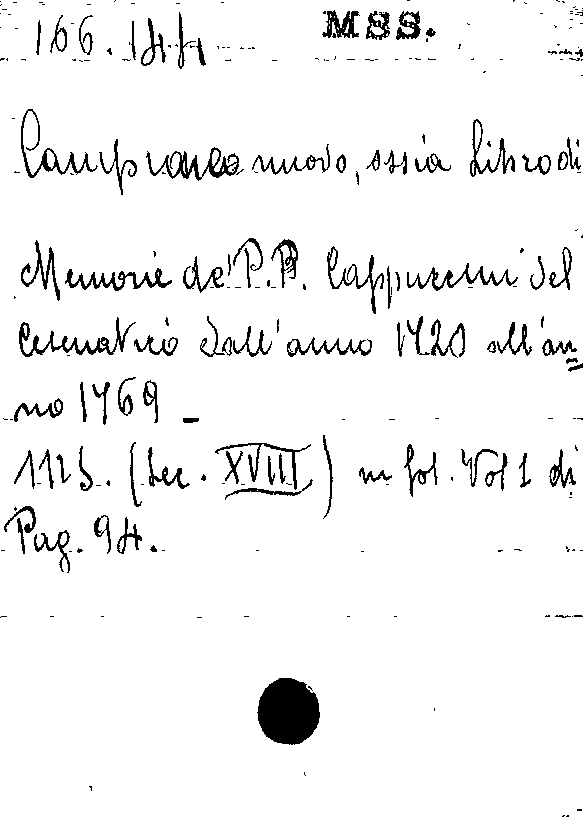 166.144 MSS.
Campione nuovo, ossia Libro di
Memorie de' P.P. Cappuccini del
Cesenatico dall'anno 1720 all'an=
no 1769 –
(Sec. XVIII) in fol. Vol 1 di
Pag. 94.